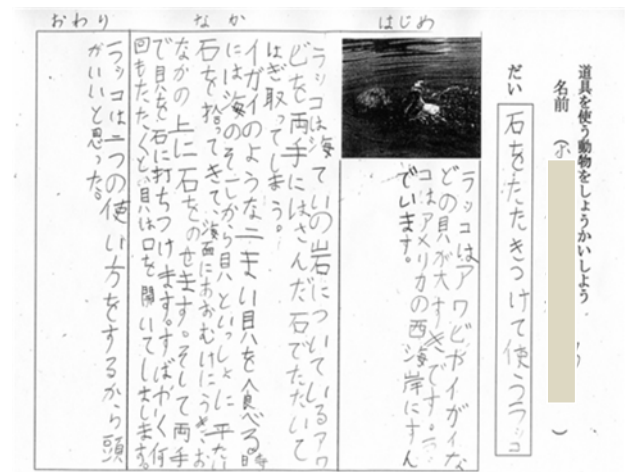 道具を使う動物をしょうかいしよう
名前（
）
だい
石をたたきつけて使うラッコ
はじめ
ラッコはアワビやイガイな
どの貝が大すきです。ラッ
コはアメリカの西海岸にすん
でいます。
なか
ラッコは海ていの岩についているアワ
ビを両手にはさんだ石でたたいて
はぎ取ってしまう。
イガイのような二まい貝を食べる時
には海のそこから貝といっしょに平たい
石を拾ってきて、海面にあおむけにうき、お
なかの上に石をのせます。そして両手
で貝を石に打ちつけます。すばやく何
回もたたくと、貝は口を開いてしまします。
おわり
ラッコは二つの使い方をするから頭
がいいと思った。